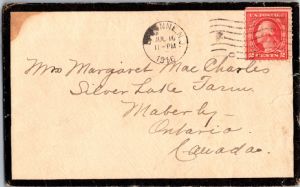 BAYONNE, N.J.
JUL 16
11-PM
1916
U.S. POSTAGE
2 CENTS 2
Mrs Margaret Mac Charles
Silver Lake Farm
Maberly
Ontario
Canada.